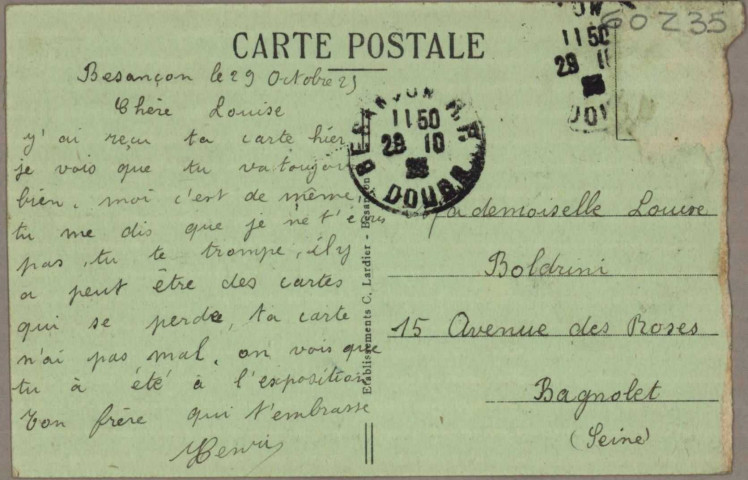 CARTE POSTALE
Besançon le 29 Octobre 25
Chère Louise
y' ai reçu ta carte hier
je vois que tu va toujours
bien, moi c'est de même,
tu me dis que je ne t'écris
pas, tu te trompe, il y
a peut être des cartes
qui se perde, ta carte
n'ai pas mal, on vois que
tu à été à l'exposition
Ton frère qui t'embrasse
Henri
Etablissements C. Lardier - Besançon
BESANÇON R.P.
11 50
29 10
DOUBS
11 50
29 10
60235
Mademoiselle Louise
Boldrini
15 Avenue des Roses
Bagnolet
(Seine)